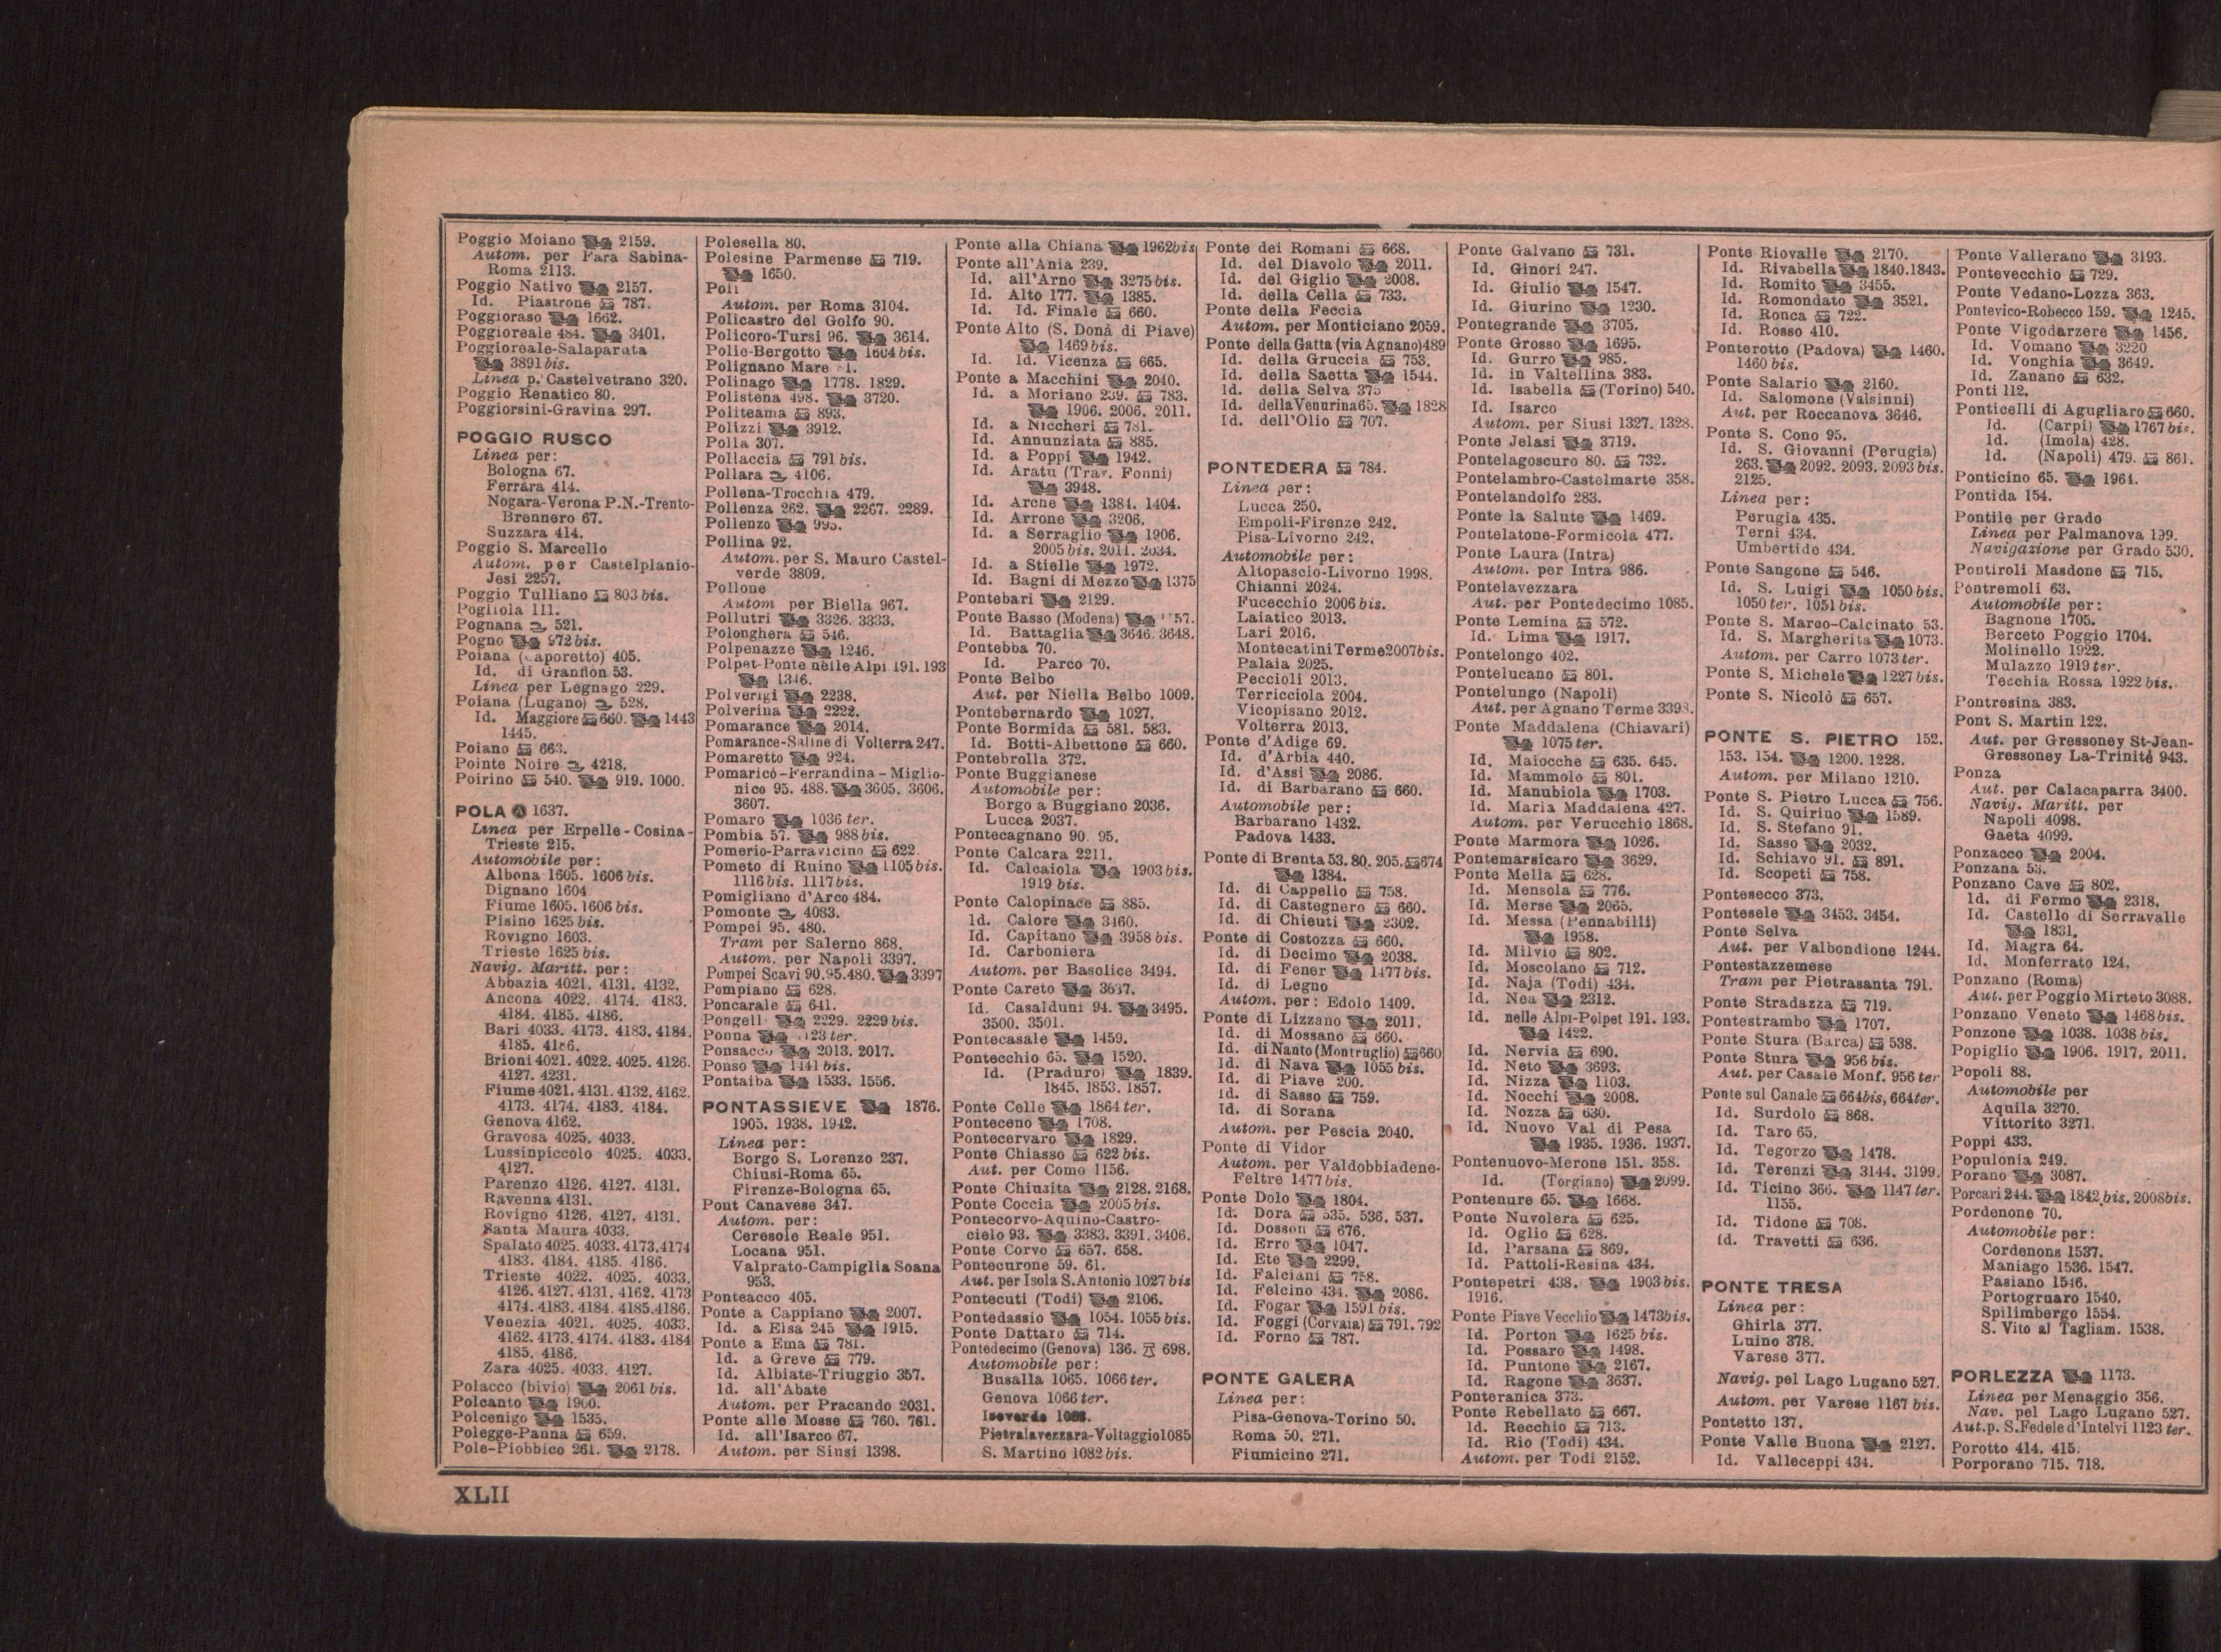 Poggio Moiano 2159.
Autom. per Fara Sabina-
Roma 2113.
Poggio Nativo 2157.
Id. Piastrone 787.
Poggioraso 1662.
Poggioreale 484. 3401.
Poggioreale-Salaparuta
3891 bis.
Linea p. Castelvetrano 320.
Poggio Renatico 80.
Poggiorsini-Gravina 297.
POGGIO RUSCO
Linea per:
Bologna 67.
Ferrara 414.
Nogara-Verona P.N.-Trento-
Brennero 67.
Suzzara 414.
Poggio S. Marcello
Autom. per Castelplanio-
Jesi 2257.
Poggio Tulliano 803 bis.
Pogliola 111.
Pognana 521.
Pogno 972 bis.
Poiana (Caporetto) 405.
Id. di Granfion 53.
Linea per Legnago 229.
Poiana (Lugano) 528.
Id. Maggiore 660. 1443
1445.
Poiano 663.
Pointe Noire 4218.
Poirino 540. 919. 1000.
POLA 1637.
Linea per Erpelle-Cosina-
Trieste 215.
Automobile per:
Albona 1605. 1606 bis.
Dignano 1604
Fiume 1605. 1606 bis.
Pisino 1625 bis.
Rovigno 1603.
Trieste 1625 bis.
Navig. Maritt. per:
Abbazia 4021. 4131. 4132.
Ancona 4022. 4174. 4183.
4184. 4185. 4186.
Bari 4033. 4173. 4183. 4184.
4185. 4186.
Brioni 4021. 4022. 4025. 4126.
4127. 4231.
Fiume 4021. 4131. 4132. 4162.
4173. 4174. 4183. 4184.
Genova 4162.
Gravosa 4025. 4033.
Lussinpiccolo 4025. 4033.
4127.
Parenzo 4126. 4127. 4131.
Ravenna 4131.
Rovigno 4126. 4127. 4131.
Santa Maura 4033.
Spalato 4025. 4033. 4173. 4174
4183. 4184. 4185. 4186.
Trieste 4022. 4025. 4033.
4126. 4127. 4131. 4162. 4173
4174. 4183. 4184. 4185. 4186.
Venezia 4021. 4025. 4033.
4162. 4173. 4174. 4183. 4184
4185. 4186.
Zara 4025. 4033. 4127.
Polacco (bivio) 2061 bis.
Polcanto 1900.
Polcenigo 1535.
Polegge-Panna 659.
Pole-Piobbico 261. 2178.
Polesella 80.
Polesine Parmense 719.
1650.
Poli
Autom. per Roma 3104.
Policastro del Golfo 90.
Policoro-Tursi 96. 3614.
Polie-Bergotto 1604 bis.
Polignano Mare
Polinago 1778. 1829.
Polistena 498. 3720.
Politeama 893.
Polizzi 3912.
Polla 307.
Pollaccia 791 bis.
Pollara 4106.
Pollena-Trocchia 479.
Pollenza 262. 2267. 2289.
Pollenzo 995.
Pollina 92.
Autom. per S. Mauro Castel-
verde 3809.
Pollone
Autom per Biella 967.
Pollutri 3326. 3333.
Polonghera 546.
Polpenazze 1246.
Polpet-Ponte nelle Alpi 191. 193
1346.
Polverigi 2238.
Polverina 2222.
Pomarance 2014.
Pomarance-Saline di Volterra 247.
Pomaretto 924.
Pomarico-Ferrandina-Miglio-
nico 95. 488. 3605. 3606.
3607.
Pomaro 1036 ter.
Pombia 57. 988 bis.
Pomerio-Parravicino 622.
Pometo di Ruino 1105 bis.
1116 bis. 1117 bis.
Pomigliano d'Arco 484.
Pomonte 4083.
Pompei 95. 480.
Tram per Salerno 868.
Autom. per Napoli 3397.
Pompei Scavi 90. 95. 480. 3397
Pompiano 628.
Poncarale 641.
Pongelli 2229. 2229 bis.
Ponna 1123 ter.
Ponsacco 2013. 2017.
Ponso 1441 bis.
Pontaiba 1533. 1556.
PONTASSIEVE 1876.
1905. 1938. 1942.
Linea per:
Borgo S. Lorenzo 237.
Chiusi-Roma 65.
Firenze-Bologna 65.
Pont Canavese 347.
Autom. per:
Ceresole Reale 951.
Locana 951.
Valprato-Campiglia Soana
953.
Ponteacco 405.
Ponte a Cappiano 2007.
Id. a Elsa 245 1915.
Ponte a Ema 781.
Id. a Greve 779.
Id. Albiate-Triuggio 357.
Id. all'Abate
Autom. per Pracando 2031.
Ponte alle Mosse 760. 761.
Id. all'Isarco 67.
Autom. per Siusi 1398.
Ponte alla Chiana 1962 bis
Ponte all'Ania 239.
Id. all'Arno 3275 bis.
Id. Alto 177. 1385.
Id. Id. Finale 660.
Ponte Alto (S. Donà di Piave)
1469 bis.
Id. Id. Vicenza 665.
Ponte a Macchini 2040.
Id. a Moriano 239. 783.
1906. 2006. 2011.
Id. a Niccheri 781.
Id. Annunziata 885.
Id. a Poppi 1942.
Id. Aratu (Trav. Fonni)
3948.
Id. Arche 1384. 1404.
Id. Arrone 3206.
Id. a Serraglio 1906.
2005 bis. 2011. 2034.
Id. a Stielle 1972.
Id. Bagni di Mezzo 1375
Pontebari 2129.
Ponte Basso (Modena)
Id. Battaglia 3646. 3648.
Pontebba 70.
Id. Parco 70.
Ponte Belbo
Aut. per Niella Belbo 1009.
Pontebernardo 1027.
Ponte Bormida 581. 583.
Id. Botti-Albettone 660.
Pontebrolla 372.
Ponte Buggianese
Automobile per:
Borgo a Buggiano 2036.
Lucca 2037.
Pontecagnano 90. 95.
Ponte Calcara 2211.
Id. Calcaiola 1903 bis.
1919 bis.
Ponte Calopinace 885.
Id. Calore 3460.
Id. Capitano 3958 bis.
Id. Carboniera
Autom. per Baselice 3494.
Ponte Careto 3637.
Id. Casalduni 94. 3495.
3500. 3501.
Pontecasale 1459.
Pontecchio 65. 1520.
Id. (Praduro) 1839.
1845. 1853. 1857.
Ponte Celle 1864 ter.
Ponteceno 1708.
Pontecervaro 1829.
Ponte Chiasso 622 bis.
Aut. per Como 1156.
Ponte Chiusita 2128. 2168.
Ponte Coccia 2005 bis.
Pontecorvo-Aquino-Castro-
cielo 93. 3383. 3391. 3406.
Ponte Corvo 657. 658.
Pontecurone 59. 61.
Aut. per Isola S. Antonio 1027 bis
Pontecuti (Todi) 2106.
Pontedassio 1054. 1055 bis.
Ponte Dattaro 714.
Pontedecimo (Genova) 136. 698.
Automobile per:
Busalla 1065. 1066 ter.
Genova 1066 ter.
Isoverde
Pietralavezzara-Voltaggio 1085
S. Martino 1082 bis.
Ponte dei Romani 668.
Id. del Diavolo 2011.
Id. del Giglio 2008.
Id. della Cella 733.
Ponte della Feccia
Autom. per Monticiano 2059.
Ponte della Gatta (via Agnano) 489
Id. della Gruccia 753.
Id. della Saetta 1544.
Id. della Selva 375
Id. della Venturina 65. 1828
Id. dell'Olio 707.
PONTEDERA 784.
Linea per:
Lucca 250.
Empoli-Firenze 242.
Pisa-Livorno 242.
Automobile per:
Altopascio-Livorno 1998.
Chianni 2024.
Fucecchio 2006 bis.
Laiatico 2013.
Lari 2016.
Montecatini Terme 2007 bis.
Palaia 2025.
Peccioli 2013.
Terricciola 2004.
Vicopisano 2012.
Volterra 2013.
Ponte d'Adige 69.
Id. d'Arbia 440.
Id. d'Assi 2086.
Id. di Barbarano 660.
Automobile per:
Barbarano 1432.
Padova 1433.
Ponte di Brenta 53. 80. 205. 674
1384.
Id. di Cappello 758.
Id. di Castegnero 660.
Id. di Chienti 2302.
Ponte di Costozza 660.
Id. di Decimo 2038.
Id. di Fener 1477 bis.
Id. di Legno
Autom. per: Edolo 1409.
Ponte di Lizzano 2011.
Id. di Mossano 660.
Id. di Nanto (Montruglio) 660
Id. di Nava 1055 bis.
Id. di Piave 200.
Id. di Sasso 759.
Id. di Sorana
Autom. per Pescia 2040.
Ponte di Vidor
Autom. per Valdobbiadene-
Feltre 1477 bis.
Ponte Dolo 1804.
Id. Dora 535. 536. 537.
Id. Dosson 676.
Id. Erro 1047.
Id. Ete 2299.
Id. Falciani 758.
Id. Felcino 434. 2086.
Id. Fogar 1591 bis.
Id. Foggi (Corvaia) 791. 792
Id. Forno 787.
PONTE GALERA
Linea per:
Pisa-Genova-Torino 50.
Roma 50. 271.
Fiumicino 271.
Ponte Galvano 731.
Id. Ginori 247.
Id. Giulio 1547.
Id. Giurino 1230.
Pontegrande 3705.
Ponte Grosso 1695.
Id. Gurro 985.
Id. in Valtellina 383.
Id. Isabella (Torino) 540.
Id. Isarco
Autom. per Siusi 1327. 1328.
Ponte Jelasi 3719.
Pontelagoscuro 80. 732.
Pontelambro-Castelmarte 358.
Pontelandolfo 283.
Ponte la Salute 1469.
Pontelatone-Formicola 477.
Ponte Laura (Intra)
Autom. per Intra 986.
Pontelavezzara
Aut. per Pontedecimo 1085.
Ponte Lemina 572.
Id. Lima 1917.
Pontelongo 402.
Pontelucano 801.
Pontelungo (Napoli)
Aut. per Agnano Terme 3398.
Ponte Maddalena (Chiavari)
1075 ter.
Id. Maiocche 635. 645.
Id. Mammolo 801.
Id. Manubiola 1703.
Id. Maria Maddalena 427.
Autom. per Verucchio 1868.
Ponte Marmora 1026.
Pontemarsicaro 3629.
Ponte Mella 628.
Id. Mensola 776.
Id. Merse 2065.
Id. Messa (Pennabilli)
1958.
Id. Milvio 802.
Id. Moscolano 712.
Id. Naja (Todi) 434.
Id. Nea 2312.
Id. nelle Alpi-Polpet 191. 193.
1422.
Id. Nervia 690.
Id. Neto 3693.
Id. Nizza 1103.
Id. Nocchi 2008.
Id. Nozza 630.
Id. Nuovo Val di Pesa
1935. 1936. 1937.
Pontenuovo-Merone 151. 358.
Id. (Torgiano) 2099.
Pontenure 65. 1668.
Ponte Nuvolera 625.
Id. Oglio 628.
Id. Parsana 869.
Id. Pattoli-Resina 434.
Pontepetri 438. 1903 bis.
1916.
Ponte Piave Vecchio 1473 bis.
Id. Porton 1625 bis.
Id. Possaro 1498.
Id. Puntone 2167.
Id. Ragone 3637.
Ponteranica 373.
Ponte Rebellato 667.
Id. Recchio 713.
Id. Rio (Todi) 434.
Autom. per Todi 2152.
Ponte Riovalle 2170.
Id. Rivabella 1840. 1843.
Id. Romito 3455.
Id. Romondato 3521.
Id. Ronca 722.
Id. Rosso 410.
Ponterotto (Padova) 1460.
1460 bis.
Ponte Salario 2160.
Id. Salomone (Valsinni)
Aut. per Roccanova 3646.
Ponte S. Cono 95.
Id. S. Giovanni (Perugia)
263. 2092. 2093. 2093 bis.
2125.
Linea per:
Perugia 435.
Terni 434.
Umbertide 434.
Ponte Sangone 546.
Id. S. Luigi 1050 bis.
1050 ter. 1051 bis.
Ponte S. Marco-Calcinato 53.
Id. S. Margherita 1073.
Autom. per Carro 1073 ter.
Ponte S. Michele 1227 bis.
Ponte S. Nicolò 657.
PONTE S. PIETRO 152.
153. 154. 1200. 1228.
Autom. per Milano 1210.
Ponte S. Pietro Lucca 756.
Id. S. Quirino 1589.
Id. S. Stefano 91.
Id. Sasso 2032.
Id. Schiavo 91. 891.
Id. Scopeti 758.
Pontesecco 373.
Pontesele 3453. 3454.
Ponte Selva
Aut. per Valbondione 1244.
Pontestazzemese
Tram per Pietrasanta 791.
Ponte Stradazza 719.
Pontestrambo 1707.
Ponte Stura (Barca) 538.
Ponte Stura 956 bis.
Aut. per Casale Monf. 956 ter
Ponte sul Canale 664 bis, 664 ter.
Id. Surdolo 868.
Id. Taro 65.
Id. Tegorzo 1478.
Id. Terenzi 3144. 3199.
Id. Ticino 366. 1147 ter.
1155.
Id. Tidone 708.
Id. Travetti 636.
PONTE TRESA
Linea per:
Ghirla 377.
Luino 378.
Varese 377.
Navig. pel Lago Lugano 527.
Autom. per Varese 1167 bis.
Pontetto 137.
Ponte Valle Buona 2127.
Id. Valleceppi 434.
Ponte Vallerano 3193.
Pontevecchio 729.
Ponte Vedano-Lozza 363.
Pontevico-Robecco 159. 1245.
Ponte Vigodarzere 1456.
Id. Vomano 3220
Id. Vonghia 3649.
Id. Zanano 632.
Ponti 112.
Ponticelli di Agugliaro 660.
Id. (Carpi) 1767 bis.
Id. (Imola) 428.
Id. (Napoli) 479. 861.
Ponticino 65. 1964.
Pontida 154.
Pontile per Grado
Linea per Palmanova 199.
Navigazione per Grado 530.
Pontiroli Masdone 715.
Pontremoli 63.
Automobile per:
Bagnone 1705.
Berceto Poggio 1704.
Molinello 1922.
Mulazzo 1919 ter.
Tecchia Rossa 1922 bis.
Pontresina 383.
Pont S. Martin 122.
Aut. per Gressoney St-Jean-
Gressoney La-Trinité 943.
Ponza
Aut. per Calacaparra 3400.
Navig. Maritt. per
Napoli 4098.
Gaeta 4099.
Ponzacco 2004.
Ponzana 53.
Ponzano Cave 802.
Id. di Fermo 2318.
Id. Castello di Serravalle
1831.
Id. Magra 64.
Id. Monferrato 124.
Ponzano (Roma)
Aut. per Poggio Mirteto 3088.
Ponzano Veneto 1468 bis.
Ponzone 1038. 1038 bis.
Popiglio 1906. 1917. 2011.
Popoli 88.
Automobile per
Aquila 3270.
Vittorito 3271.
Poppi 433.
Populonia 249.
Porano 3087.
Porcari 244. 1842 bis. 2008 bis.
Pordenone 70.
Automobile per:
Cordenons 1537.
Maniago 1536. 1547.
Pasiano 1546.
Portogruaro 1540.
Spilimbergo 1554.
S. Vito al Tagliam. 1538.
PORLEZZA 1173.
Linea per Menaggio 356.
Nav. pel Lago Lugano 527.
Aut. p. S. Fedele d'Intelvi 1123 ter.
Porotto 414. 415.
Porporano 715. 718.
XLII